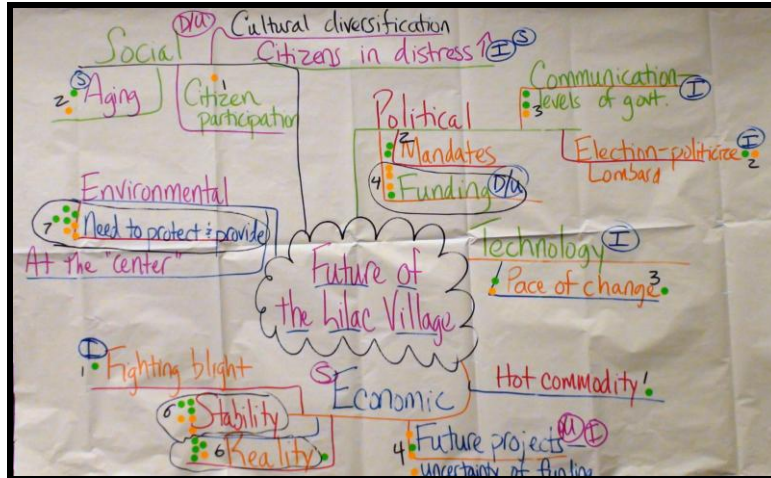 D/U
Cultural diversification
Social
Citizens in distress ↑
I
S
S
2
Aging
1
Citizen
participation
Communication-
levels of govt.
I
3
Political
2
Mandates
4
Funding
D/U
I
Election-politicize
2
Lombard
Environmental
7
Need to protect & provide
At the "center"
Technology
I
Pace of change
3
Future of
the Lilac Village
I
1
Fighting blight
S
Economic
Hot commodity
1
6
Stability
6
Reality
4
Future projects
U
I
uncertainty of funding